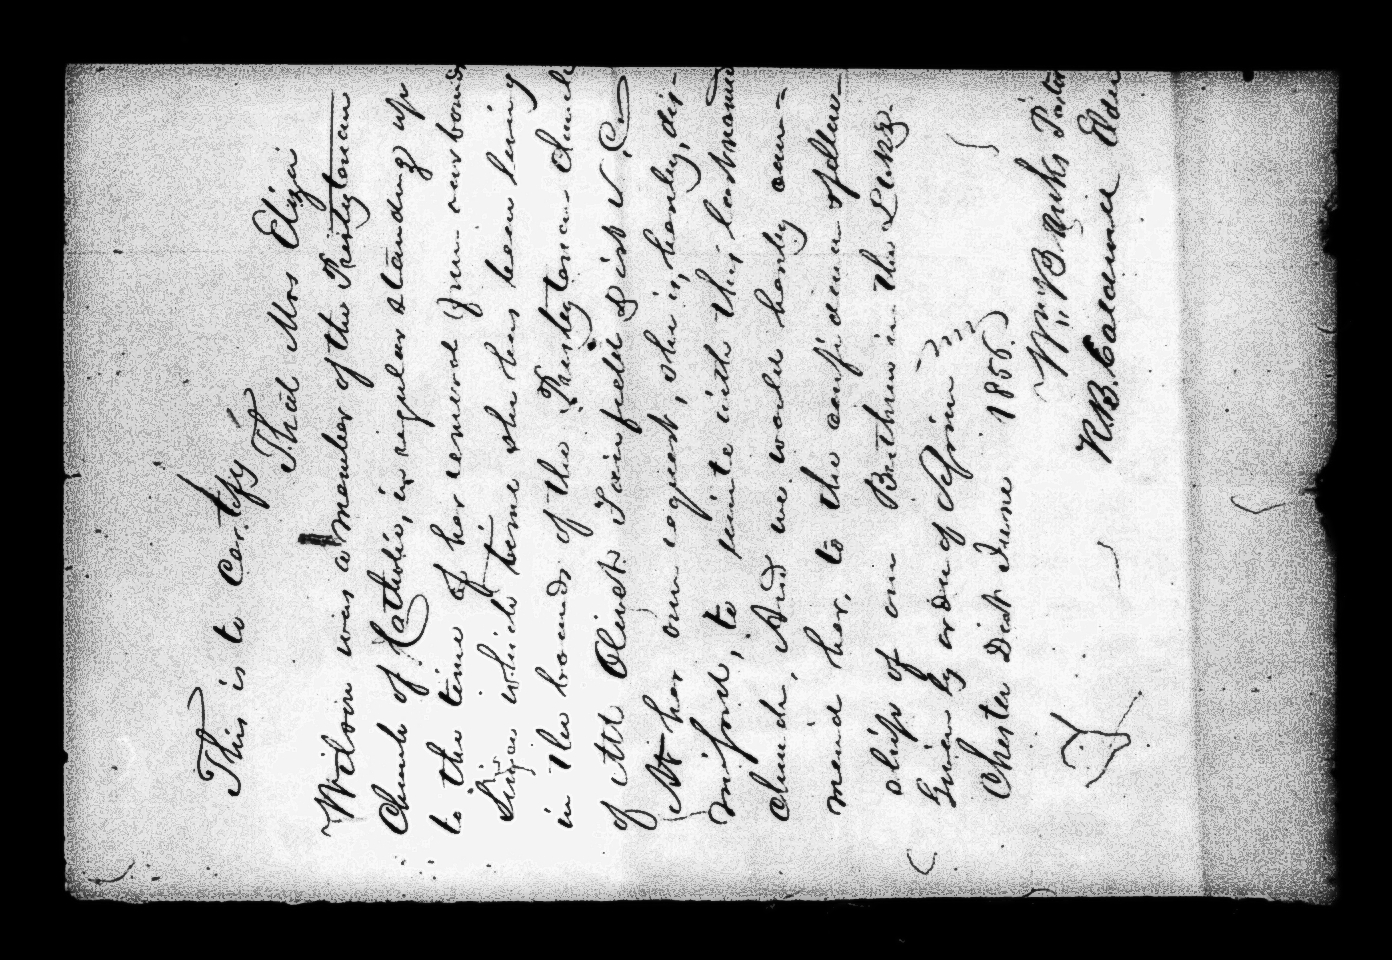 This is to Certify That Mrs Eliza
Wilson was a member of the Presbyterian
Church of Catholic, in regular standing up
to the time of her removal from our bounds
Since which time she has been living
in the bounds of the Presbyterian Church
of Mt Olivet Fairfield Dist S. C.
At her own request, she is hereby, dis-
missed, to unite with the last named
church, And we would hereby com-
mend her, to the confidence &
of our Brethren in the Lord,
Given by order of Session
Chester Dist June 1855.
Wm Banks Pastor
R. B. Caldwell Elder